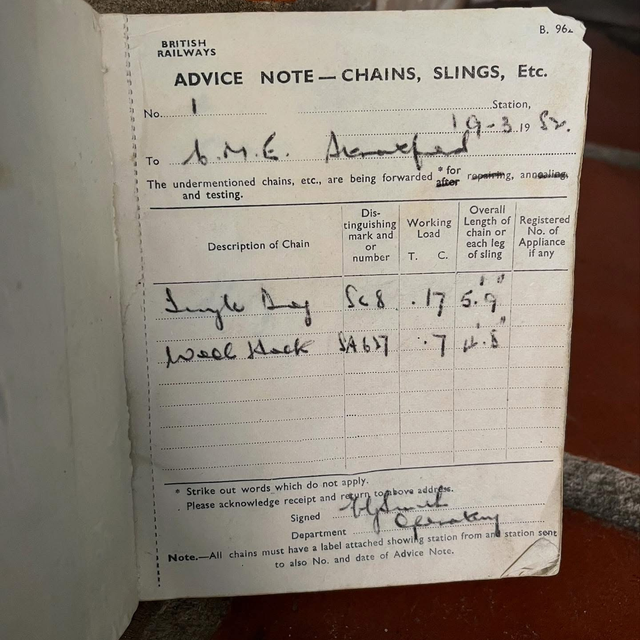 BRITISH
RAILWAYS
B. 962
ADVICE NOTE — CHAINS, SLINGS, Etc.
No. 1 Station,
19-3 19 52.
To C.M.E.
The undermentioned chains, etc., are being forwarded * for after repairing, annealing,
and testing.
Description of Chain
Dis-
tinguishing
mark and
or
number
Working
Load
T. C.
Overall
Length of
chain or
each leg
of sling
Registered
No. of
Appliance
if any
Single Dog Sc 8 . 17 5' 9"
Wool Hook SA 637 . 7 4' 8"
* Strike out words which do not apply.
Please acknowledge receipt and return to above address.
Signed Smith
Department Operating
Note.—All chains must have a label attached showing station from and station sent
to also No. and date of Advice Note.